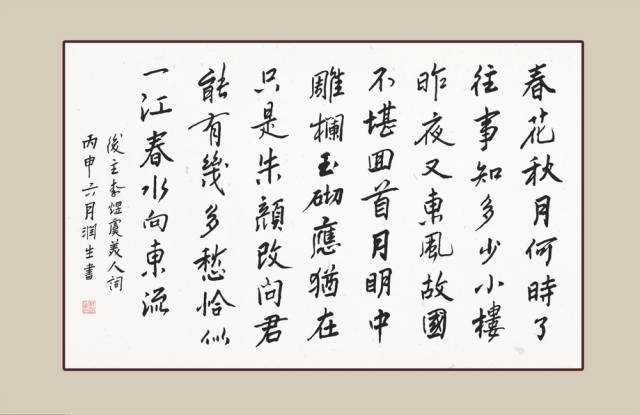 春花秋月何時了
往事知多少小樓
昨夜又東風故國
不堪回首月明中
雕欄玉砌應猶在
只是朱顏改問君
能有幾多愁恰似
一江春水向東流
後主李煜虞美人詞
丙申六月潤生書